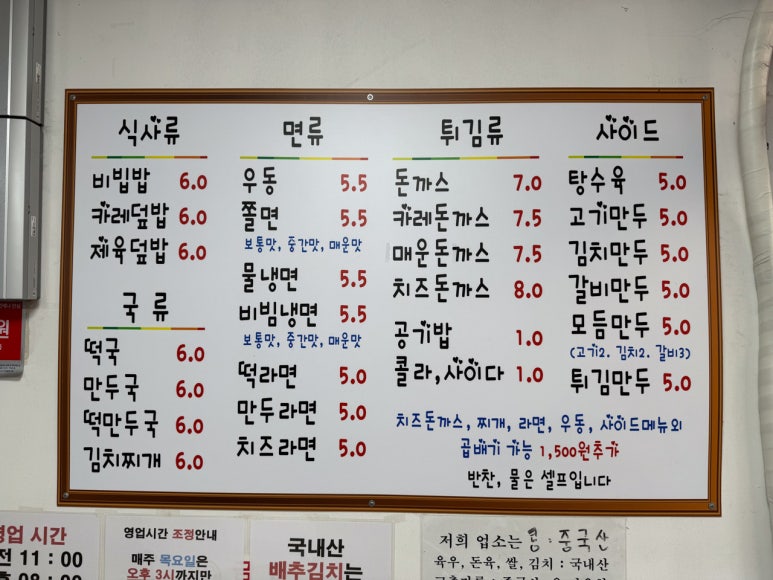 식사류
비빕밥 6.0
카레덮밥 6.0
제육덮밥 6.0
국 류
떡국 6.0
만두국 6.0
떡만두국 6.0
김치찌개 6.0
면류
우동 5.5
쫄면 5.5
보통맛, 중간맛, 매운맛
물냉면 5.5
비빔냉면 5.5
보통맛, 중간맛, 매운맛
떡라면 5.0
만두라면 5.0
치즈라면 5.0
튀김류
돈까스 7.0
카레돈까스 7.5
매운돈까스 7.5
치즈돈까스 8.0
공기밥 1.0
콜라,사이다 1.0
사이드
탕수육 5.0
고기만두 5.0
김치만두 5.0
갈비만두 5.0
모듬만두 5.0
(고기2. 김치2. 갈비3)
튀김만두 5.0
치즈돈까스, 찌개, 라면, 우동, 사이드메뉴외
곱배기 가능 1,500원추가
반찬, 물은 셀프입니다
영업 시간
전 11 : 00
영업시간 조정안내
매주 목요일은
오후 3시까지만
국내산
배추김치는
저희 업소는 중국산
육우, 돈육, 쌀, 김치 : 국내산